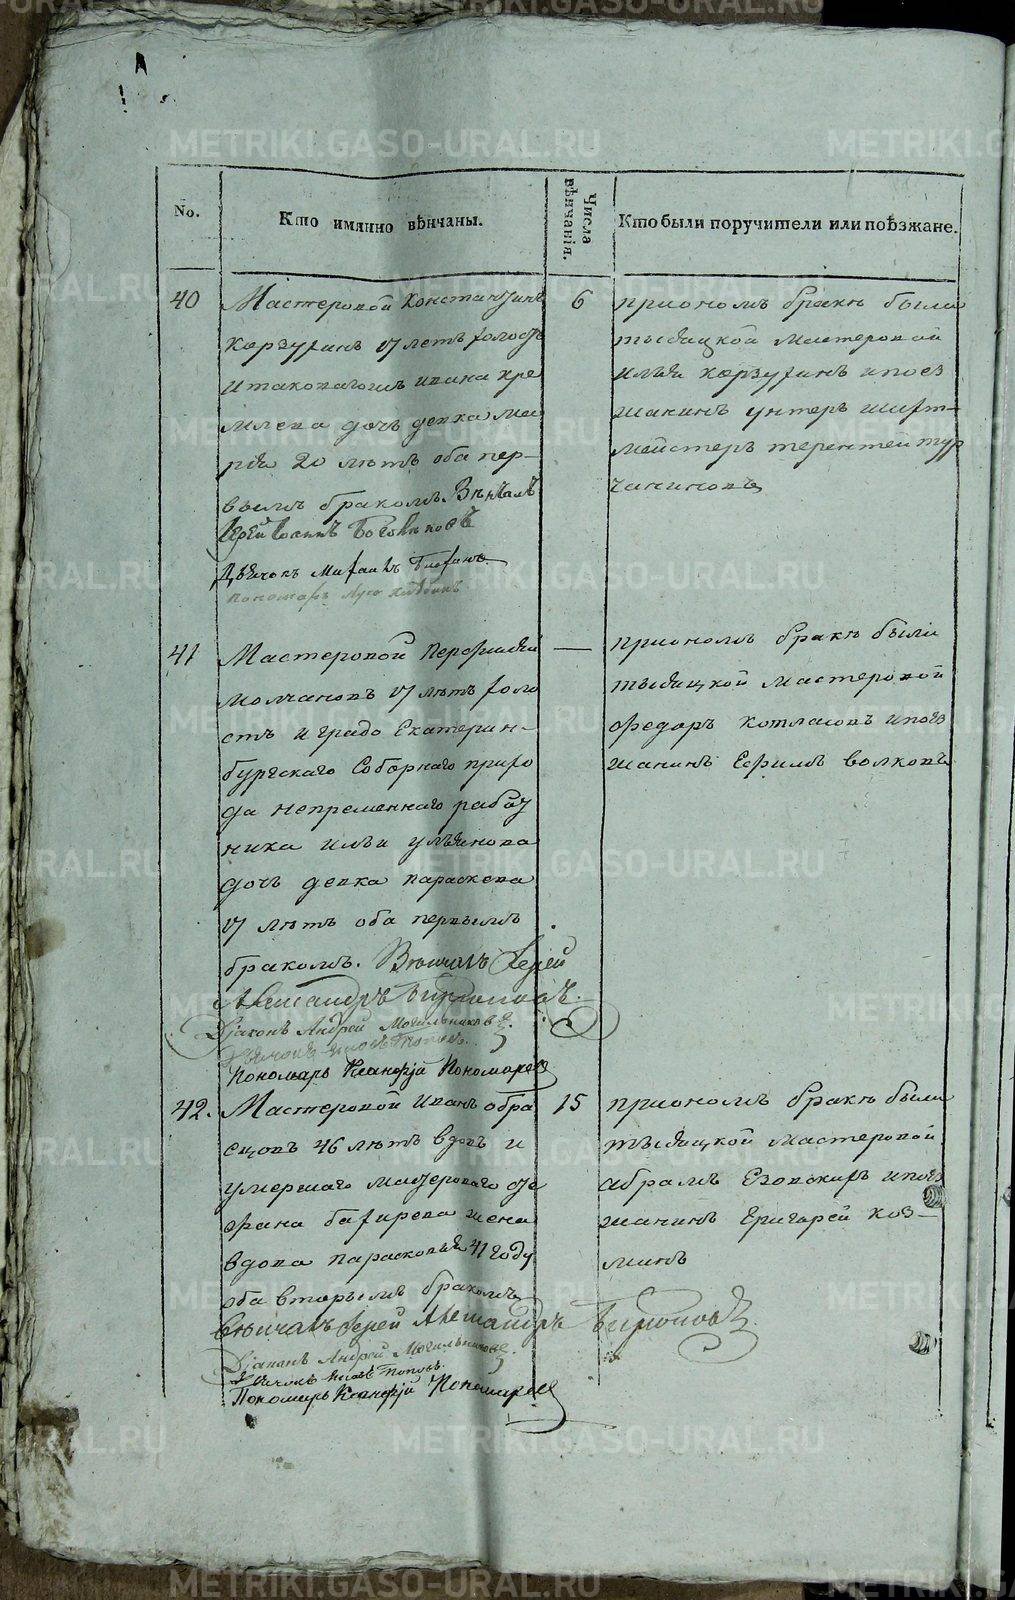 No.
Кто имянно вѣнчаны.
Числа вѣнчанія.
Кто были поручители или поѣзжане.
40
Мастеровой Константинъ
Корзухинъ 17 летъ холостъ
и таковагожъ ивана кре
млева дочь девка ма
рія 20 лѣтъ оба пер-
вымъ бракомъ. Вѣнчалъ
Іерей
Дьячокъ Михаилъ
пономарь
6
при ономъ бракѣ были
тысяцкой мастеровой
илья корзухинъ и поез
жанинъ унтеръ шихт-
мейстеръ терентей тур
чаниновъ
41
Мастеровой Перфилей
молчановъ 17 лѣтъ холо
стъ и града Екатерин-
бургскаго Соборнаго прихо
да непременнаго работ
ника ильи ульянова
дочь девка параскева
17 лѣтъ оба первымъ
бракомъ. Вѣнчалъ Іерей
Александръ
Діаконъ Андрей Могильниковъ.
Дьячокъ Попов.
Пономарь Ксанфій Пономаревъ
—
при ономъ бракѣ были
тысяцкой мастеровой
федоръ котласовъ и поез
жанинъ Ефимъ волковъ
42.
Мастеровой Иванъ обра
сцовъ 46 лѣтъ вдовъ и
умершаго мастероваго сте
фана бахирева жена
вдова парасковья 41 году
оба вторымъ бракомъ
Вѣнчалъ Іерей Александръ
Діаконъ Андрей Могильниковъ.
Дьячокъ Поповъ.
Пономарь Ксанфій Пономаревъ
15
при ономъ бракѣ были
тысяцкой мастеровой
абрамъ и поез
жанинъ Григорей коз-
минъ
METRIKI.GASO-URAL.RU